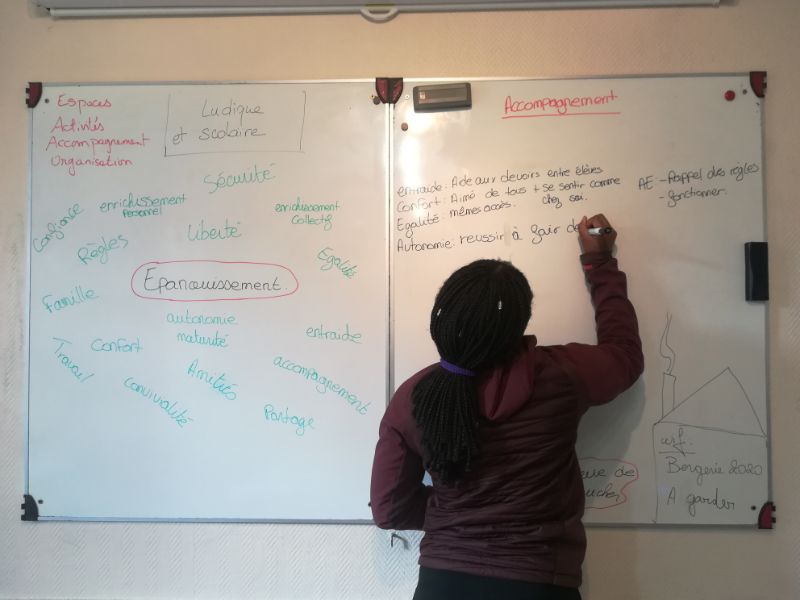 Espaces
Activités
Accompagnement
Organisation
Ludique
et scolaire
Sécurité
Confiance
enrichissement
Personnel
enrichissement
Collectif
Règles
liberté
Egalité
Epanouissement.
Famille
autonomie
maturité
entraide
Travail
Confort
Amitiés
accompagnement
convivialité
Partage
Accompagnement
entraide: Aide aux devoirs entre élèves
Confort: Aimé de tous + se sentir comme
chez soi.
Egalité: mêmes accès.
Autonomie: reussir à fair de
AE - Rappel des règles
- fonctionner.
Bergerie 2020
A garder
de